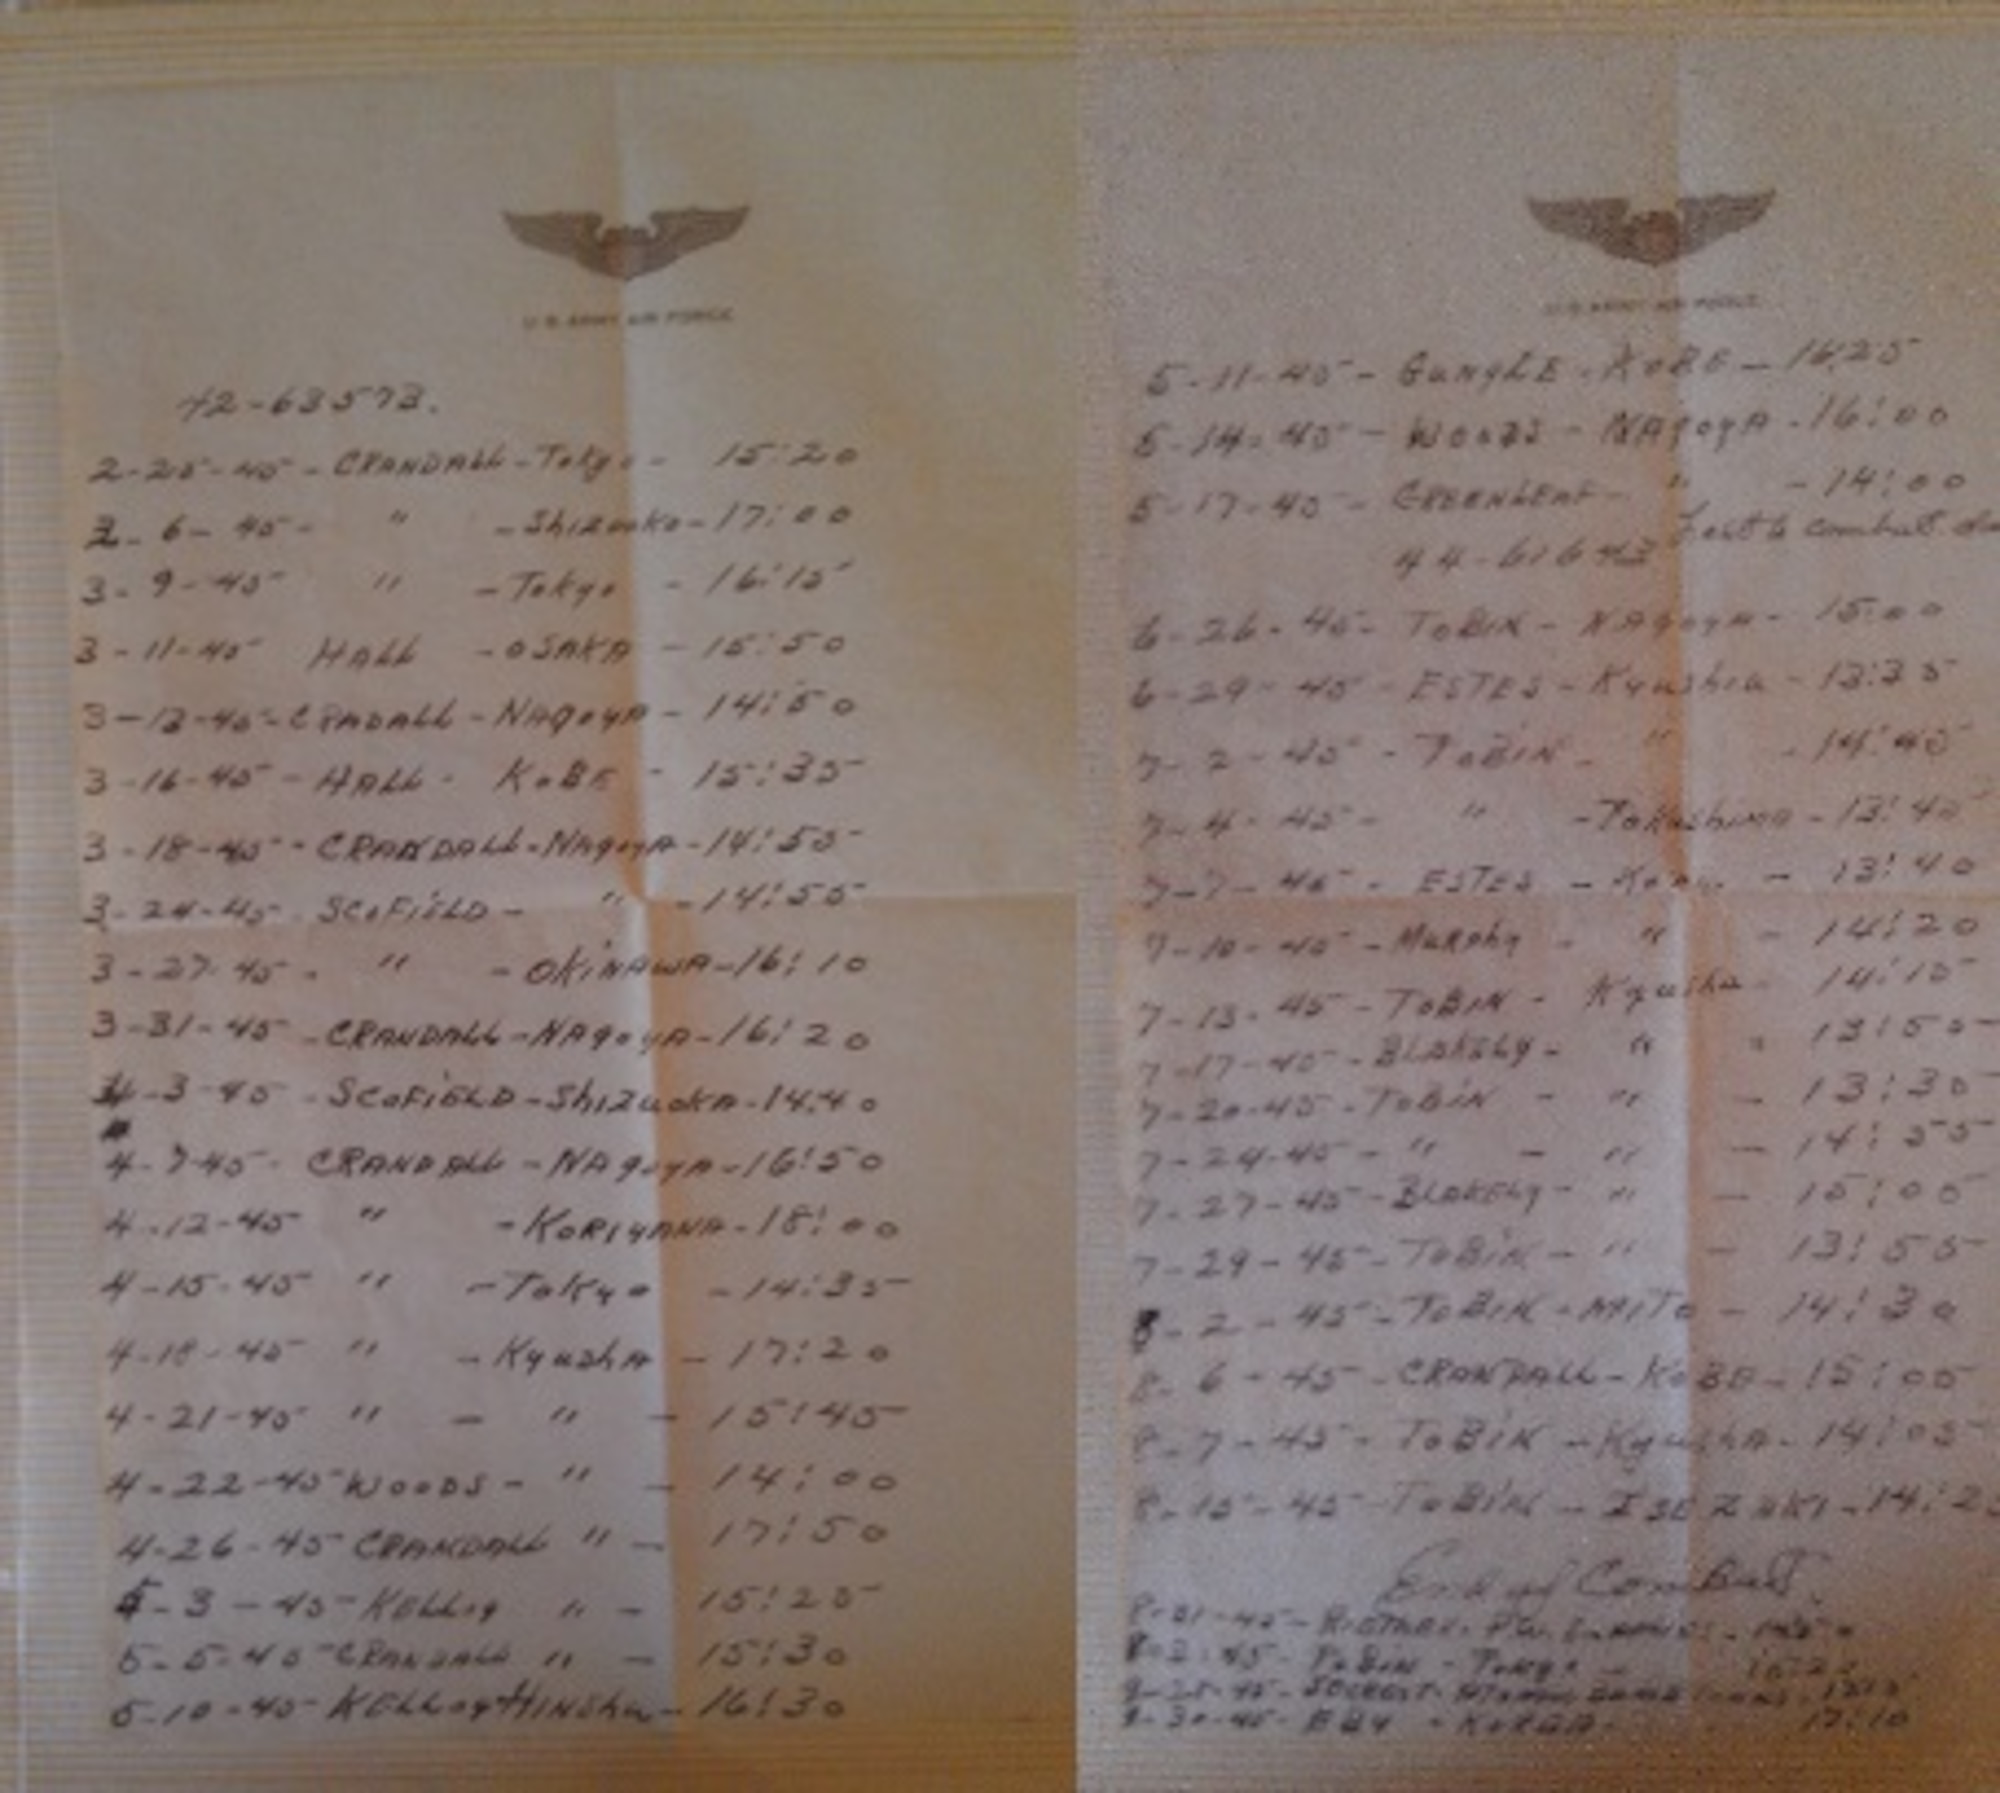 U.S. ARMY AIR FORCE
42-63573.
2-25-45 - CRANDALL - Tokyo - 15:20
3-6-45 - " - Shizuoka - 17:00
3-9-45 " - Tokyo - 16:15
3-11-45 HALL - OSAKA - 15:50
3-13-45 - CRADALL - NAgoyA - 14:50
3-16-45 - HALL - KoBE - 15:35
3-18-45 - CRANDALL - NAgoyA - 14:55
3-24-45 SCoFiELD - " - 14:55
3-27-45 - " - OKiNAWA - 16:10
3-31-45 - CRANDALL - NAgoyA - 16:20
4-3-45 - SCoFiELD - ShizuoKA - 14:40
4-7-45 - CRANDALL - NAgoyA - 16:50
4-12-45 " - KORiyANA - 18:00
4-15-45 " - ToKyo - 14:35
4-18-45 " - KyushA - 17:20
4-21-45 " - " - 15:45
4-22-45 WOODS - " - 14:00
4-26-45 CRANDALL " - 17:50
5-3-45 - KELLog " - 15:25
5-5-45 - CRANDALL " - 15:30
5-10-45 - KELLog HiNShu - 16:30
U.S. ARMY AIR FORCE
5-11-45 - GangLE - KoBE - 16:25
5-14-45 - WOODS - NAgoyA - 16:00
5-17-45 - GREENLEAF - " - 14:00
44-61643 combat
6-26-45 - ToBiN - NAgoyA - 15:00
6-29-45 - ESTES - Kyushiu - 13:35
7-2-45 - ToBiN - " - 14:45
7-4-45 - " - Tokushima - 13:40
7-7-45 - ESTES - - 13:40
7-10-45 - Murphy - " - 14:20
7-13-45 - ToBiN - Kyushu - 14:15
7-17-45 - BLAKELy - " - 13:55
7-20-45 - ToBiN - " - 13:30
7-24-45 - " - " - 14:55
7-27-45 - BLAKELy - " - 15:05
7-29-45 - ToBiN - " - 13:55
8-2-45 - ToBiN - MiTo - 14:30
8-6-45 - CRANDALL - KoBE - 15:05
8-7-45 - ToBiN - KyushA - 14:05
8-15-45 - ToBiN - ISEZAKI - 14:25
End of Combat
8-31-45 -
45 - ToBiN - Tokyo -
45 -
9-30-45 - EBY - KoREA - 17:10